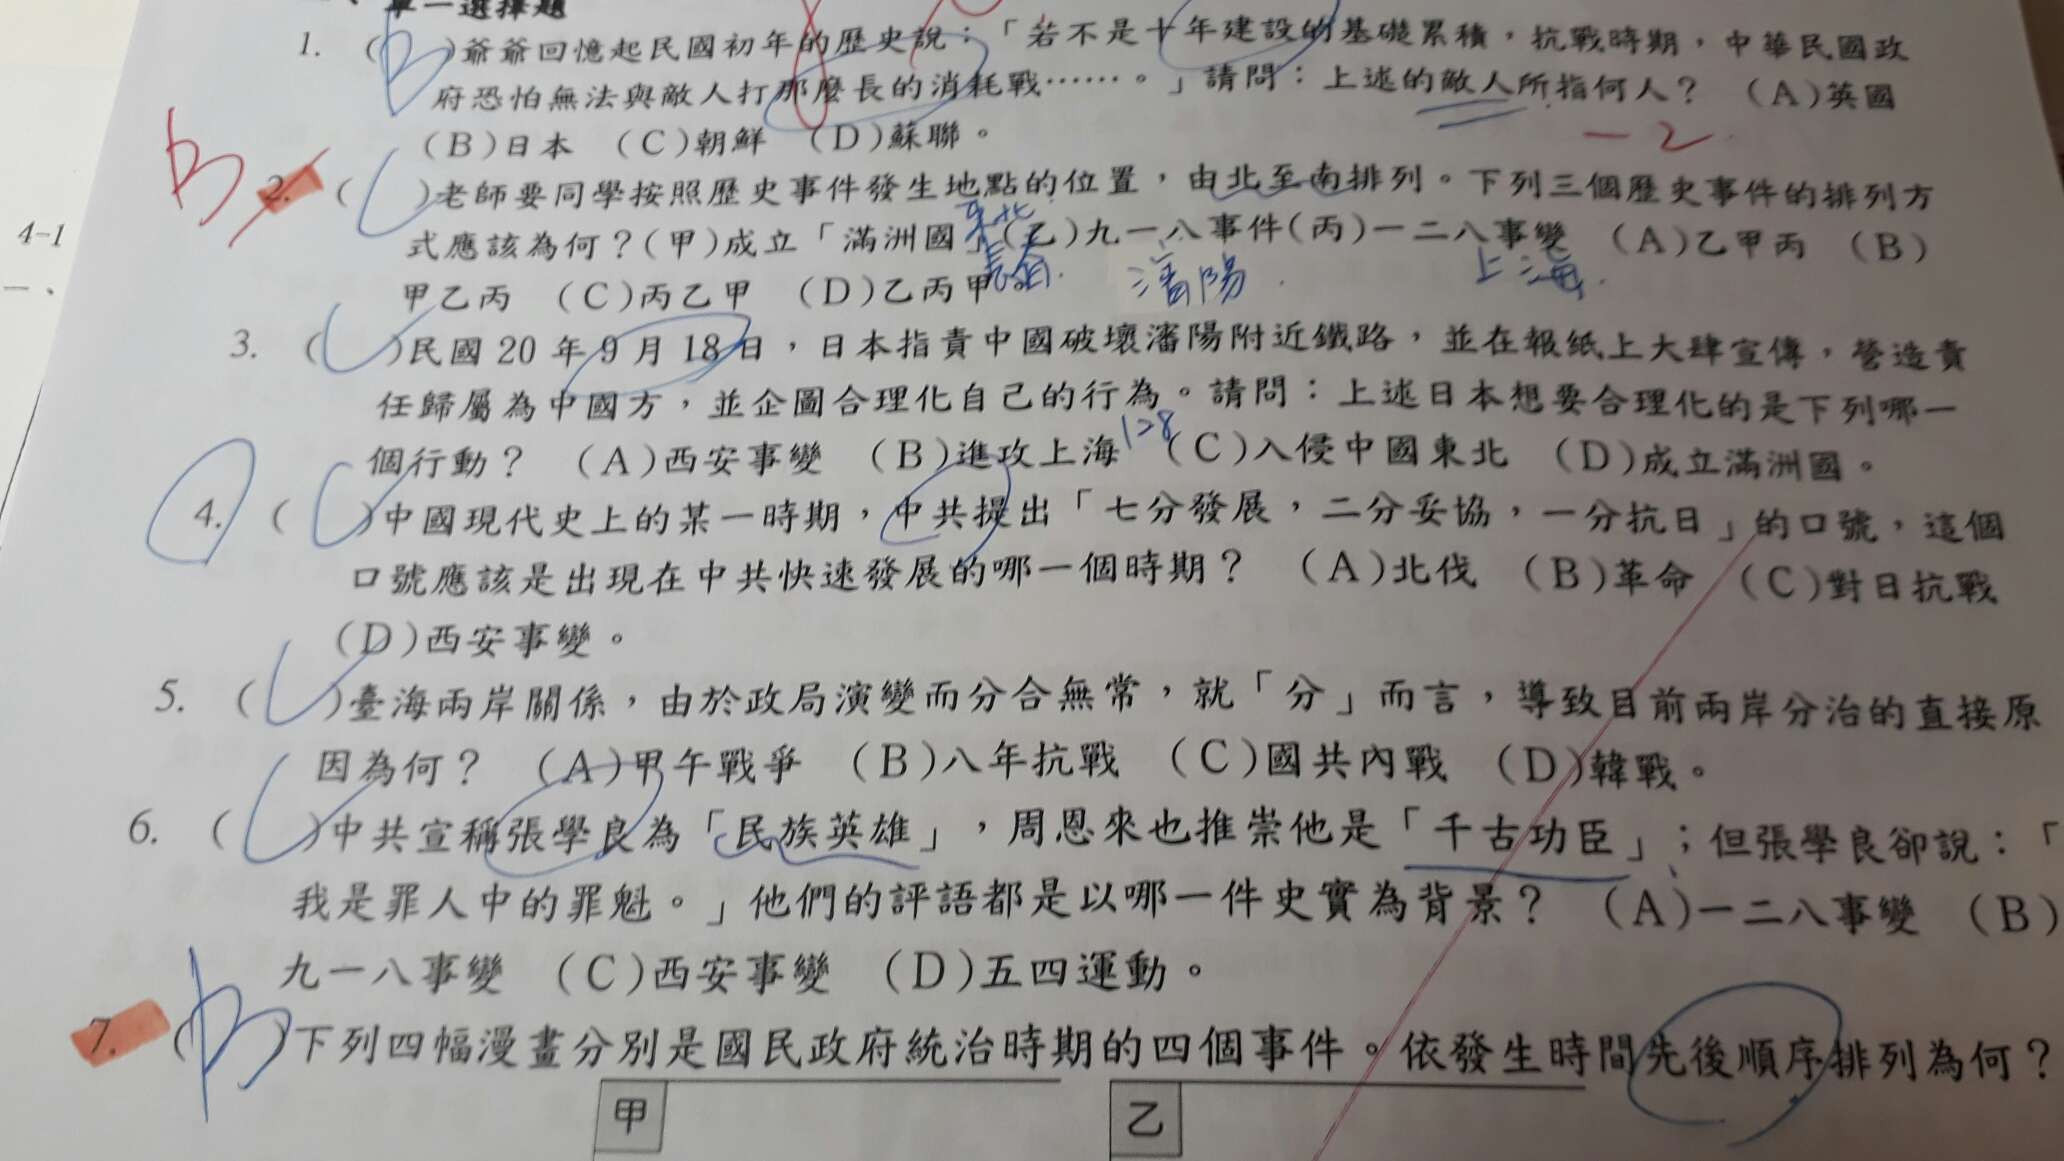 單一選擇題
1. (B)爺爺回憶起民國初年的歷史說：「若不是十年建設的基礎累積，抗戰時期，中華民國政
府恐怕無法與敵人打那麼長的消耗戰……。」請問：上述的敵人所指何人？ (A)英國
(B)日本 (C)朝鮮 (D)蘇聯。
-2
B
2. (C)老師要同學按照歷史事件發生地點的位置，由北至南排列。下列三個歷史事件的排列方
東北
式應該為何？(甲)成立「滿洲國」(乙)九一八事件(丙)一二八事變 (A)乙甲丙 (B)
長春 瀋陽 上海
甲乙丙 (C)丙乙甲 (D)乙丙甲
3. (C)民國 20 年 9 月 18 日，日本指責中國破壞瀋陽附近鐵路，並在報紙上大肆宣傳，營造責
任歸屬為中國方，並企圖合理化自己的行為。請問：上述日本想要合理化的是下列哪一
128
個行動？ (A)西安事變 (B)進攻上海 (C)入侵中國東北 (D)成立滿洲國。
4. (C)中國現代史上的某一時期，中共提出「七分發展，二分妥協，一分抗日」的口號，這個
口號應該是出現在中共快速發展的哪一個時期？ (A)北伐 (B)革命 (C)對日抗戰
(D)西安事變。
5. (C)臺海兩岸關係，由於政局演變而分合無常，就「分」而言，導致目前兩岸分治的直接原
因為何？ (A)甲午戰爭 (B)八年抗戰 (C)國共內戰 (D)韓戰。
6. (C)中共宣稱張學良為「民族英雄」，周恩來也推崇他是「千古功臣」；但張學良卻說：「
我是罪人中的罪魁。」他們的評語都是以哪一件史實為背景？ (A)一二八事變 (B)
九一八事變 (C)西安事變 (D)五四運動。
7. (B)下列四幅漫畫分別是國民政府統治時期的四個事件。依發生時間先後順序排列為何？
甲 乙
4-1
一、